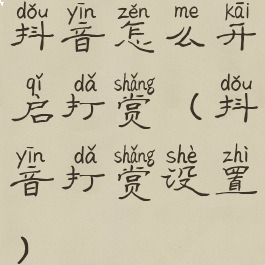 dǒu yīn zěn me kāi
抖音怎么开
qǐ dǎ shǎng dǒu
启打赏(抖
yīn dǎ shǎng shè zhì
音打赏设置
)